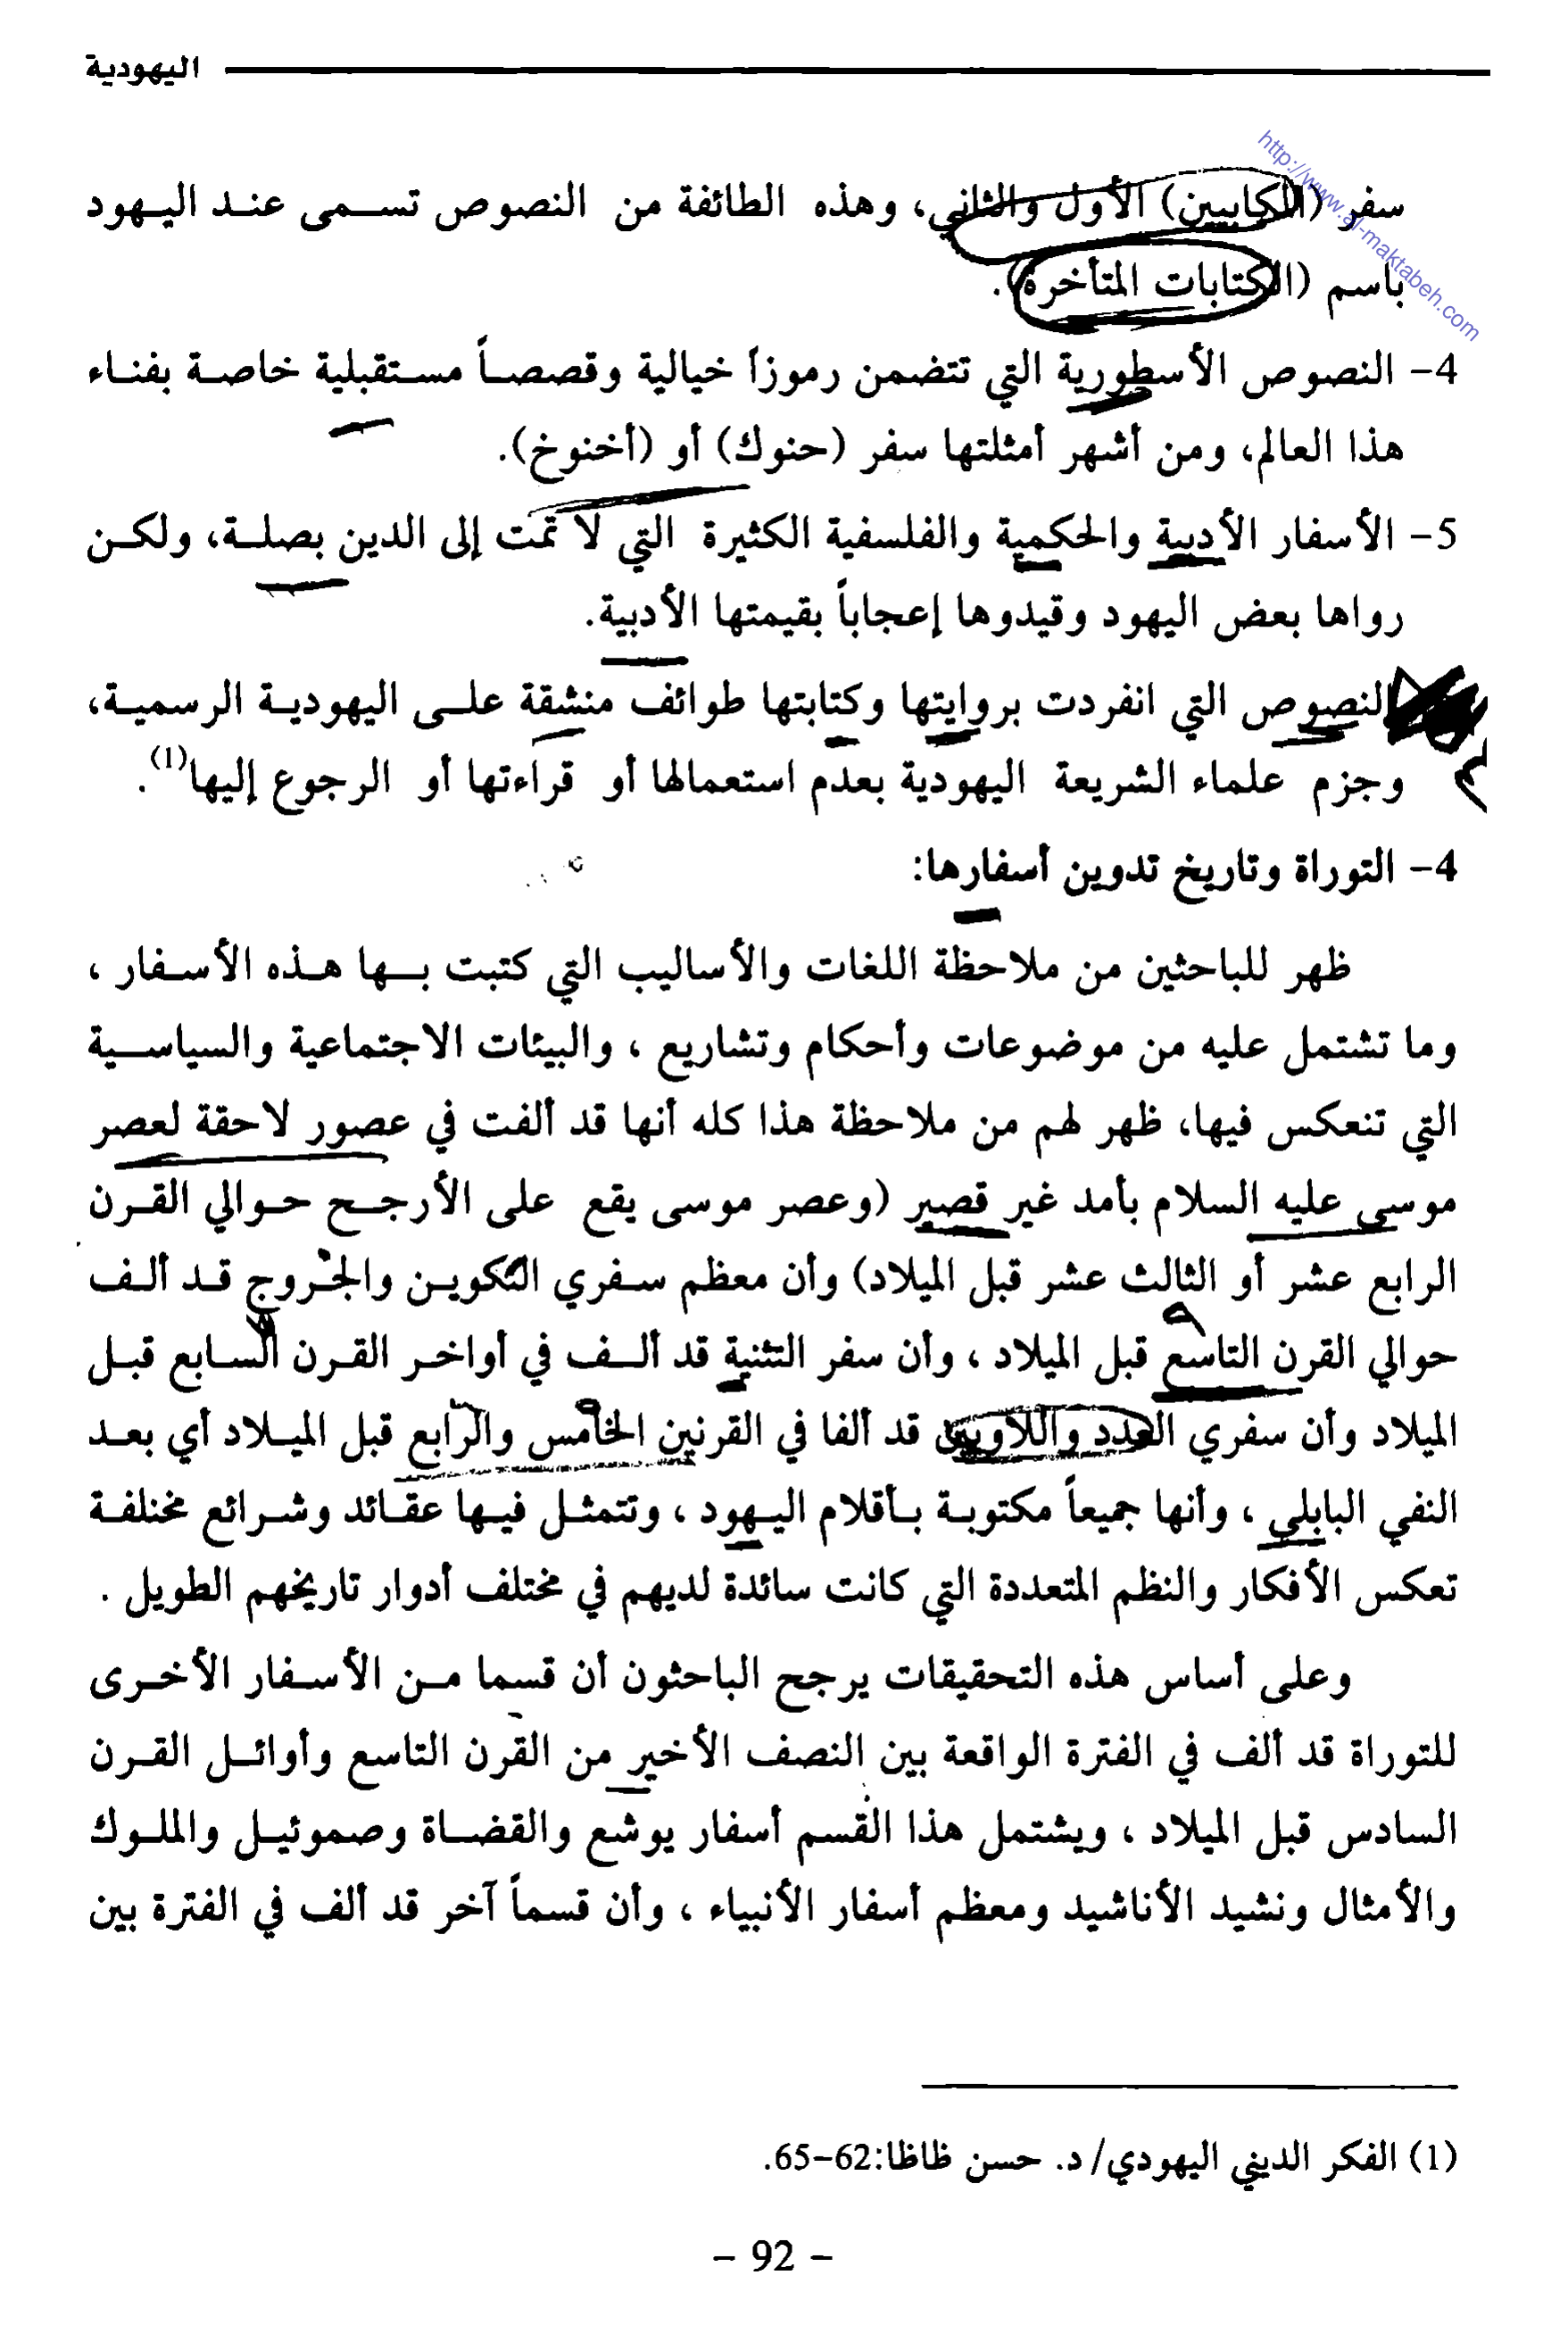 اليهودية
http://www.al-maktabeh.com
سفر (المكابيين) الأول والثاني، وهذه الطائفة من النصوص تسمى عند اليهود
باسم (الكتابات المتأخرة).
4- النصوص الأسطورية التي تتضمن رموزاً خيالية وقصصاً مستقبلية خاصة بفناء
هذا العالم، ومن أشهر أمثلتها سفر (حنوك) أو (أخنوخ).
5- الأسفار الأدبية والحكمية والفلسفية الكثيرة التي لا تمت إلى الدين بصلة، ولكن
رواها بعض اليهود وقيدوها إعجاباً بقيمتها الأدبية.
النصوص التي انفردت بروايتها وكتابتها طوائف منشقة على اليهودية الرسمية،
وجزم علماء الشريعة اليهودية بعدم استعمالها أو قراءتها أو الرجوع إليها(1).
4- التوراة وتاريخ تدوين أسفارها:
ظهر للباحثين من ملاحظة اللغات والأساليب التي كتبت بها هذه الأسفار ،
وما تشتمل عليه من موضوعات وأحكام وتشاريع ، والبيئات الاجتماعية والسياسية
التي تنعكس فيها، ظهر لهم من ملاحظة هذا كله أنها قد ألفت في عصور لاحقة لعصر
موسى عليه السلام بأمد غير قصير (وعصر موسى يقع على الأرجح حوالي القرن
الرابع عشر أو الثالث عشر قبل الميلاد) وأن معظم سفري التكوين والخروج قد ألف
حوالي القرن التاسع قبل الميلاد ، وأن سفر التثنية قد ألف في أواخر القرن السابع قبل
الميلاد وأن سفري العدد واللاويين قد ألفا في القرنين الخامس والرابع قبل الميلاد أي بعد
النفي البابلي ، وأنها جميعاً مكتوبة بأقلام اليهود ، وتتمثل فيها عقائد وشرائع مختلفة
تعكس الأفكار والنظم المتعددة التي كانت سائدة لديهم في مختلف أدوار تاريخهم الطويل .
وعلى أساس هذه التحقيقات يرجح الباحثون أن قسما من الأسفار الأخرى
للتوراة قد ألف في الفترة الواقعة بين النصف الأخير من القرن التاسع وأوائل القرن
السادس قبل الميلاد ، ويشتمل هذا القسم أسفار يوشع والقضاة وصموئيل والملوك
والأمثال ونشيد الأناشيد ومعظم أسفار الأنبياء ، وأن قسماً آخر قد ألف في الفترة بين
(1) الفكر الديني اليهودي/ د. حسن ظاظا:62-65.
- 92 -